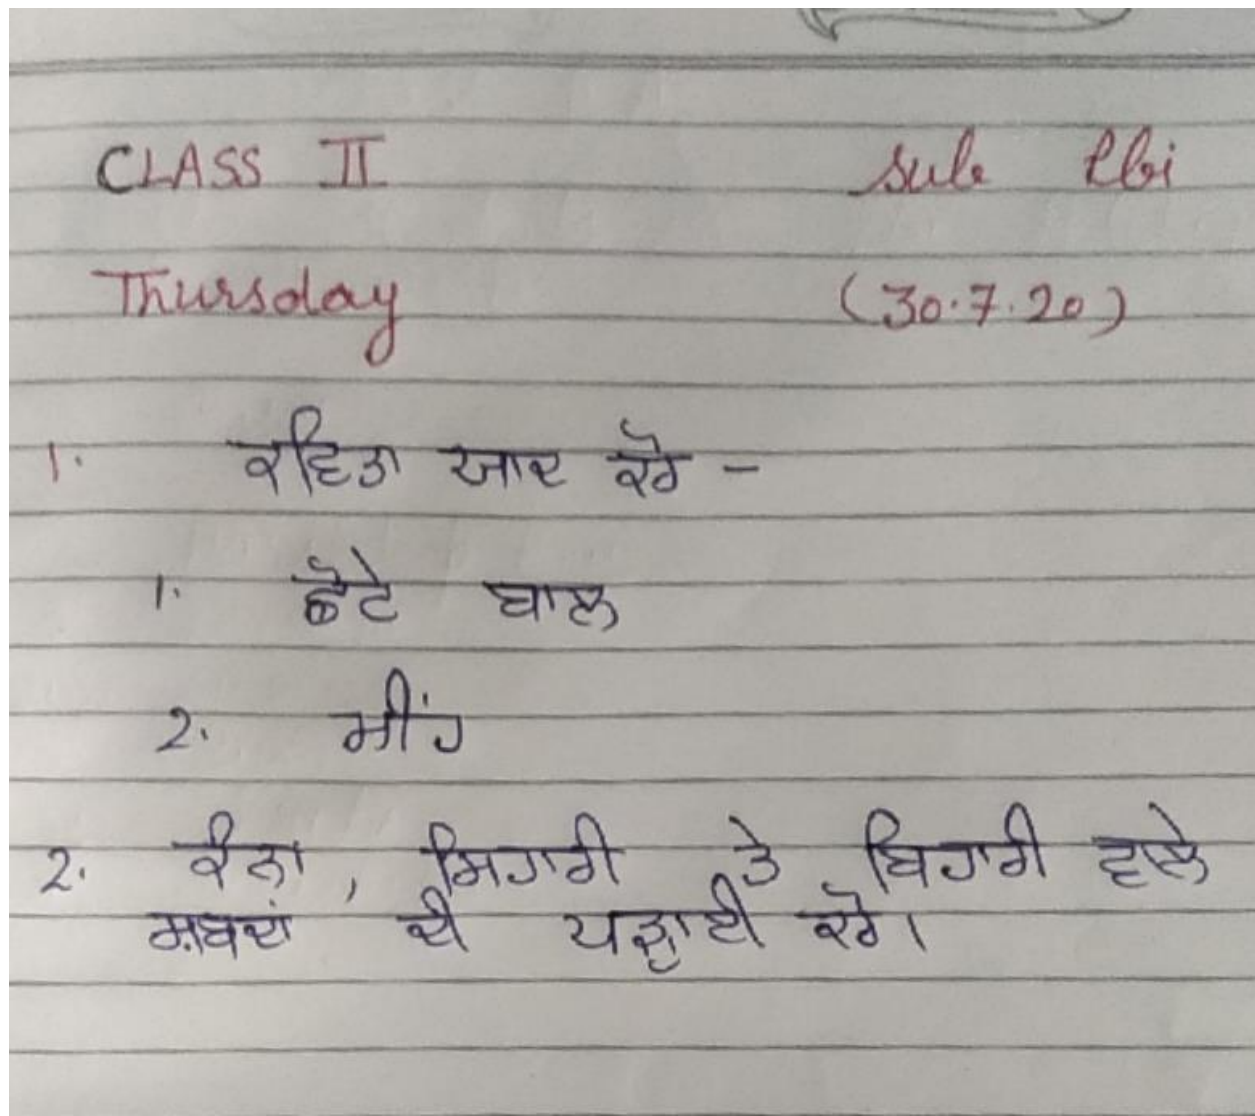 CLASS II sub Pbi
Thursday (30.7.20)
1. ਕਵਿਤਾ ਯਾਦ ਕਰੋ -
1. ਛੋਟੇ ਬਾਲ
2. ਮੀਂਹ
2. ਕੰਨਾ, ਸਿਹਾਰੀ ਤੇ ਬਿਹਾਰੀ ਵਾਲੇ
ਸ਼ਬਦਾਂ ਦੀ ਪੜ੍ਹਾਈ ਕਰੋ।